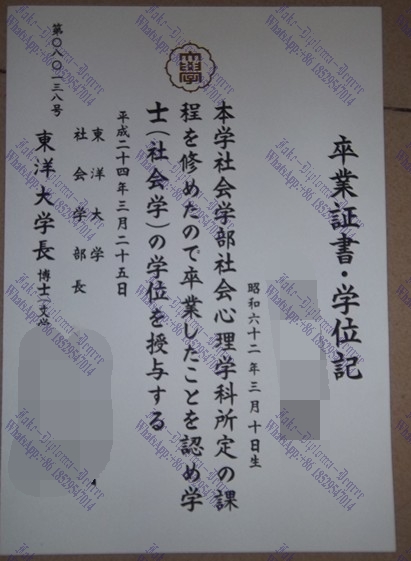 卒業証書・学位記
昭和六十二年三月十日生
本学社会学部社会心理学科所定の課
程を修めたので卒業したことを認め学
士(社会学)の学位を授与する
平成二十四年三月二十五日
東洋大学
社会学部長
東洋大学長 博士(文心
第〇八〇一三八号
WhatsApp:+86 18529547014